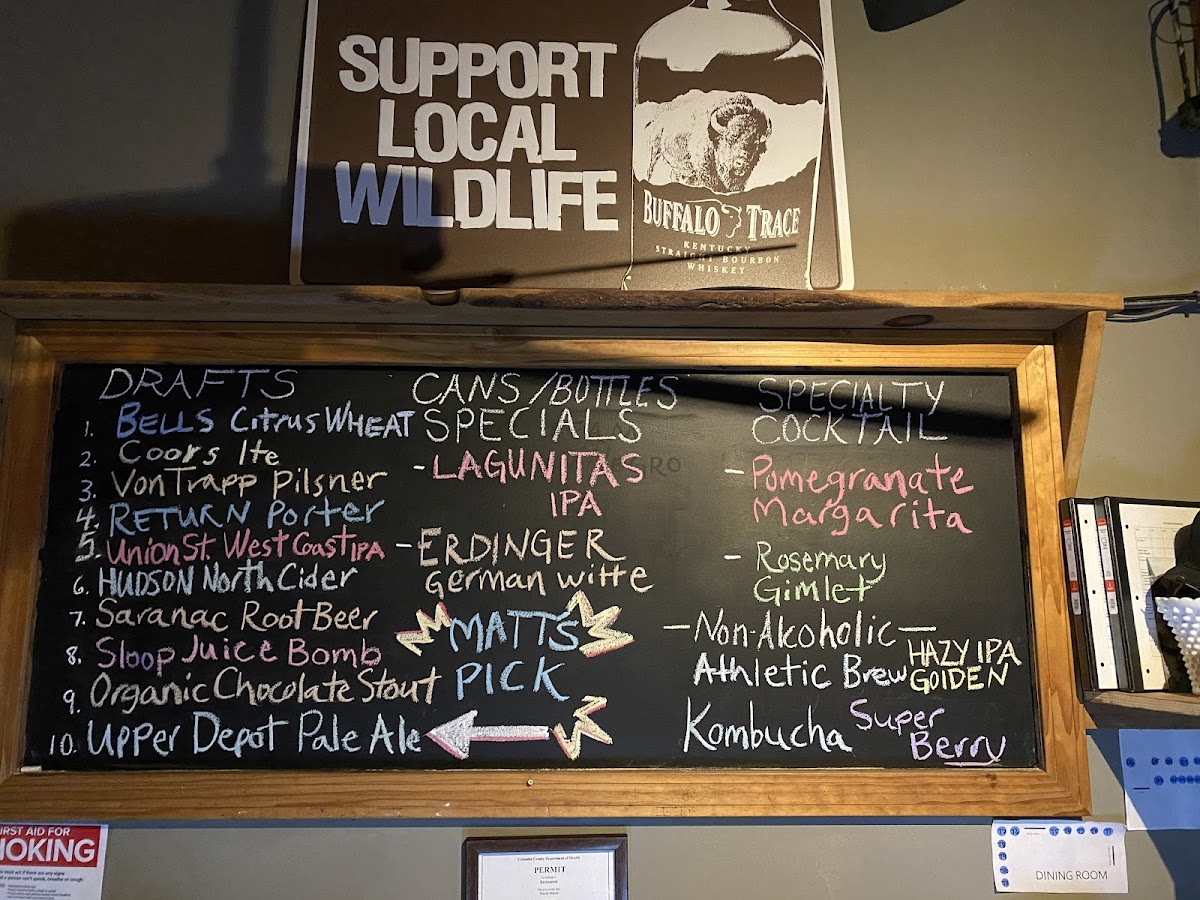 SUPPORT
LOCAL
WILDLIFE
BUFFALO TRACE
KENTUCKY
STRAIGHT BOURBON
WHISKEY
DRAFTS
1. BELLS Citrus WHEAT
2. Coors lte
3. VonTrapp Pilsner
4. RETURN Porter
5. Union St. West Coast IPA
6. HUDSON North Cider
7. Saranac Root Beer
8. Sloop Juice Bomb
9. Organic Chocolate Stout
10. Upper Depot Pale Ale
CANS/BOTTLES
SPECIALS
- LAGUNITAS
IPA
- ERDINGER
German witte
MATTS
PICK
SPECIALTY
COCKTAIL
- Pomegranate
Margarita
- Rosemary
Gimlet
- Non-Alcoholic -
Athletic Brew HAZY IPA
GOlDEN
Kombucha Super
Berry
FIRST AID FOR
CHOKING
Columbia County Department of Health
PERMIT
DINING ROOM